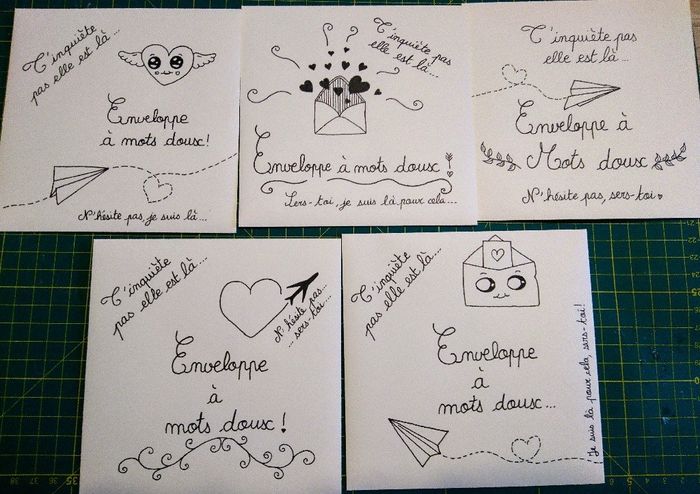 T'inquiète
pas elle est là...
Enveloppe
à mots doux!
N'hésite pas, je suis là...
T'inquiète pas
elle est là...
Enveloppe à mots doux!
Sers-toi, je suis là pour cela...
T'inquiète pas
elle est là...
Enveloppe à
Mots doux
N'hésite pas, sers-toi
T'inquiète
pas elle est là...
N'hésite pas...
...sers-toi...
Enveloppe
à
mots doux!
T'inquiète
pas elle est là...
Enveloppe
à
mots doux...
Je suis là pour cela, sers-toi!